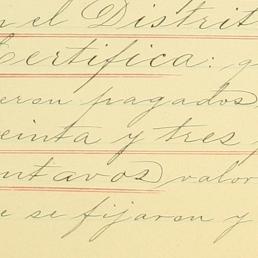 n el Distrit
Certifica: q
eron pagados
einta y tres p
ntavos valor
e se fijaron y